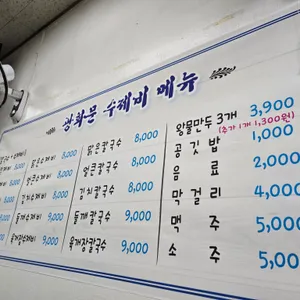 광화문 수제비 메뉴
맑은수제비 8,000
얼큰수제비 8,000
김치수제비 8,000
들깨수제비 9,000
육개장수제비 9,000
맑은칼국수 8,000
얼큰칼국수 8,000
김치칼국수 8,000
들깨칼국수 9,000
육개장칼국수 9,000
왕물만두 3개 3,900
(추가 1개 1,300원)
공깃밥 1,000
음료 2,000
막걸리 4,000
맥주 5,000
소주 5,000